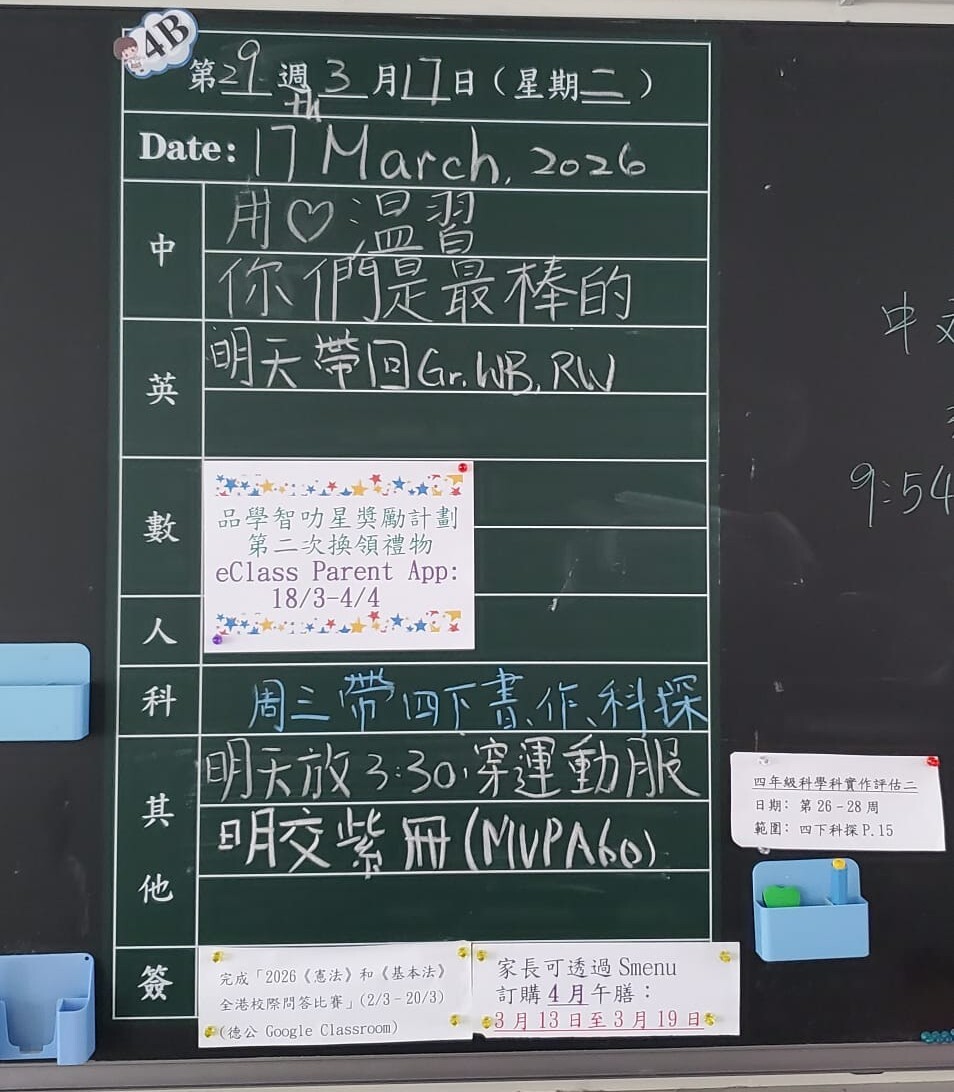 4B
第29週3月17日(星期二)
Date: 17th March, 2026
中
用♡溫習
你們是最棒的
英
明天帶回Gr.WB, RW
數
品學智叻星獎勵計劃
第二次換領禮物
eClass Parent App:
18/3-4/4
人
科
周三帶四下書、作、科探
其他
明天放3:30,穿運動服
明交紫冊(MVPA60)
簽
完成「2026《憲法》和《基本法》
全港校際問答比賽」(2/3-20/3)
(德公 Google Classroom)
家長可透過 Smenu
訂購 4 月午膳:
3 月 13 日至 3 月 19 日
中文
9:54
四年級科學科實作評估二
日期: 第 26-28 周
範圍: 四下科探 P.15